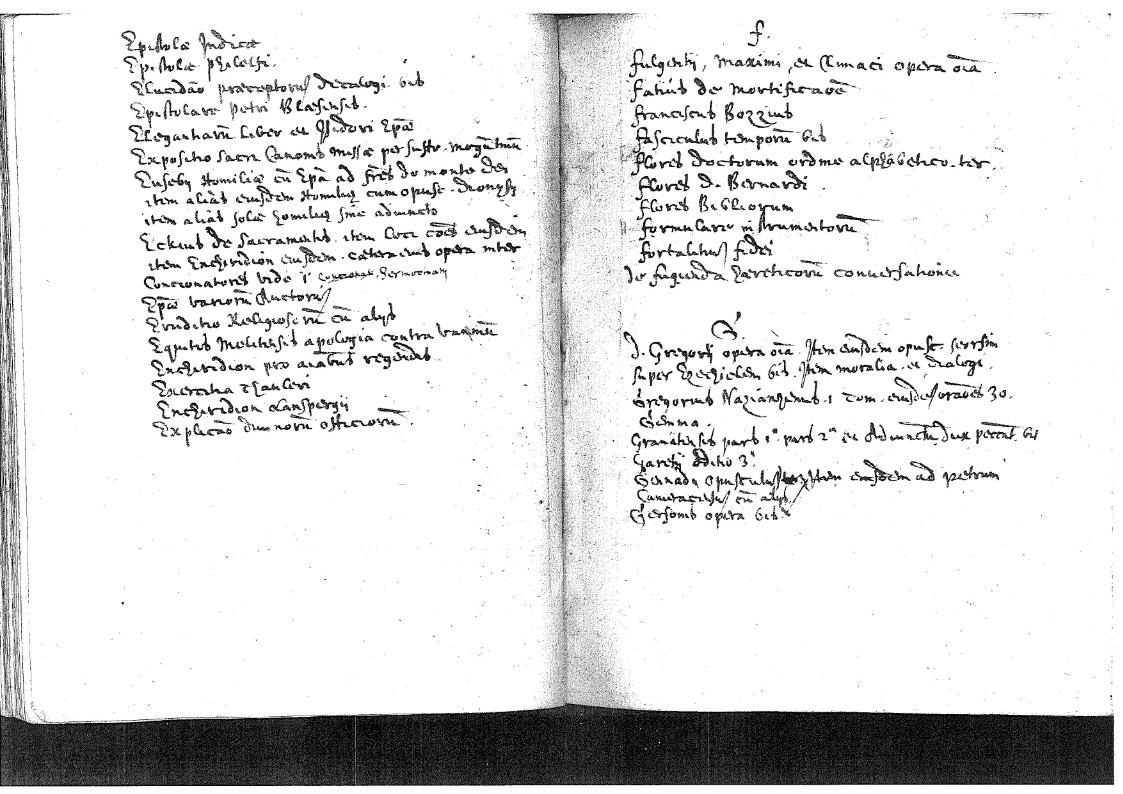 Epistolæ Indicæ
Epistolæ philelfi.
Elucidão præceptorũ decalogi bis
Epistolare Petri Blæsensis.
Elegantiarũ liber et Isidori Epæ
Expositio sacri Canonis Missæ per
Eusebij Homiliæ cũ Epã ad frẽs de monte dei
item alias eiusdem Homilias cum opusc. Dionysij
item alias solæ homiliæ sine adiuncto
Eckius de Sacramentis. item loci cões eiusdem
item Enchiridion eiusdem. cætera eius opera inter
Concionatores vide
Epæ variorũ Auctorũ
Eruditio Religiosorũ cũ alijs
Equitis Melitensis apologia contra
Enchiridion pro aĩabus regendis
Exercitia Thauleri
Enchiridion Lanspergij
Explicaõ diuinorũ officiorũ.
f.
fulgentij, Maximi, et Climaci opera oĩa
fatius de Mortificaõe
franciscus Bozzius
fasciculus temporũ bis
flores doctorum ordine alphabetico. ter.
flores D. Bernardi.
flores Bibliorum
formulare instrumentorũ
fortalitiũ fidei
De fugienda hæreticorũ conversatione
G
D. Gregorij opera oĩa. Item eiusdem opusc. seorsim
super Ezechielem bis. Item moralia. et dialogi.
Gregorius Nazianzenus. 1 Tom. eiusdẽ oraões 30.
Gemma.
Granatensis pars 1ª. pars 2ª et Adiunctũ dux peccat. bis
Garetij 3ª
Gennadij opuscula Item eiusdem ad petrum
cũ alijs
Gersonis opera bis.